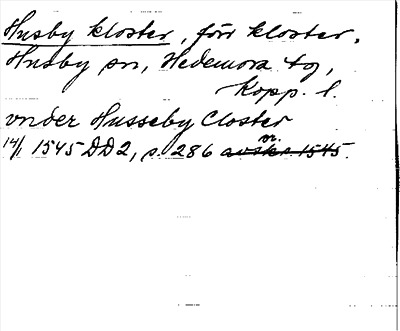 Husby kloster, förr kloster,
Husby sn, Hedemora tg,
Kopp. l.
vnder Husseby Closter
14/1 1545 DD2, s. 286 or.